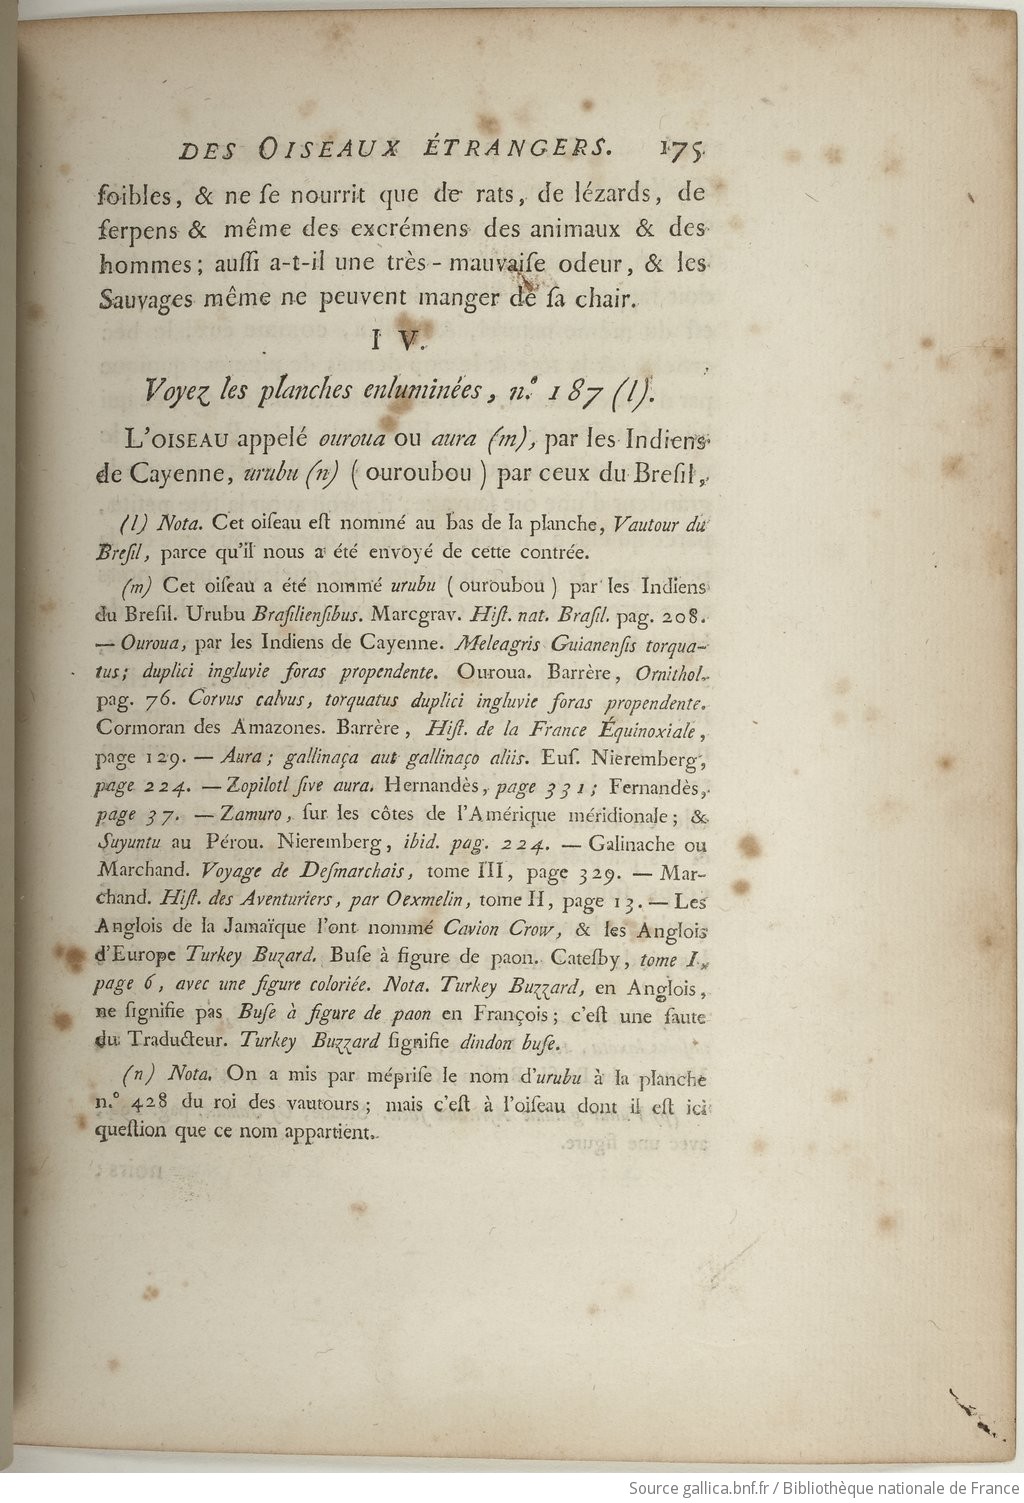 DES OISEAUX ÉTRANGERS. 175
foibles, & ne ſe nourrit que de rats, de lézards, de
ſerpens & même des excrémens des animaux & des
hommes; auſſi a-t-il une très-mauvaiſe odeur, & les
Sauvages même ne peuvent manger de ſa chair.
I V.
Voyez les planches enluminées, n.º 187 (l).
L'OISEAU appelé ouroua ou aura (m), par les Indiens
de Cayenne, urubu (n) (ouroubou) par ceux du Breſil,
(l) Nota. Cet oiſeau eſt nommé au bas de la planche, Vautour du
Breſil, parce qu'il nous a été envoyé de cette contrée.
(m) Cet oiſeau a été nommé urubu (ouroubou) par les Indiens
du Breſil. Urubu Braſilienſibus. Marcgrav. Hiſt. nat. Braſil. pag. 208.
— Ouroua, par les Indiens de Cayenne. Meleagris Guianenſis torqua-
tus; duplici ingluvie foras propendente. Ouroua. Barrère, Ornithol.
pag. 76. Corvus calvus, torquatus duplici ingluvie foras propendente.
Cormoran des Amazones. Barrère, Hiſt. de la France Équinoxiale,
page 129. — Aura; gallinaça aut gallinaço aliis. Euſ. Nieremberg,
page 224. — Zopilotl ſive aura. Hernandès, page 331; Fernandès,
page 37. — Zamuro, ſur les côtes de l'Amérique méridionale; &
Suyuntu au Pérou. Nieremberg, ibid. pag. 224. — Galinache ou
Marchand. Voyage de Deſmarchais, tome III, page 329. — Mar-
chand. Hiſt. des Aventuriers, par Oexmelin, tome II, page 13. — Les
Anglois de la Jamaïque l'ont nommé Cavion Crow, & les Anglois
d'Europe Turkey Buzard. Buſe à figure de paon. Cateſby, tome I,
page 6, avec une figure coloriée. Nota. Turkey Buzzard, en Anglois,
ne ſignifie pas Buſe à figure de paon en François; c'eſt une faute
du Traducteur. Turkey Buzzard ſignifie dindon buſe.
(n) Nota. On a mis par mépriſe le nom d'urubu à la planche
n.º 428 du roi des vautours; mais c'eſt à l'oiſeau dont il eſt ici
queſtion que ce nom appartient.
Source gallica.bnf.fr / Bibliothèque nationale de France